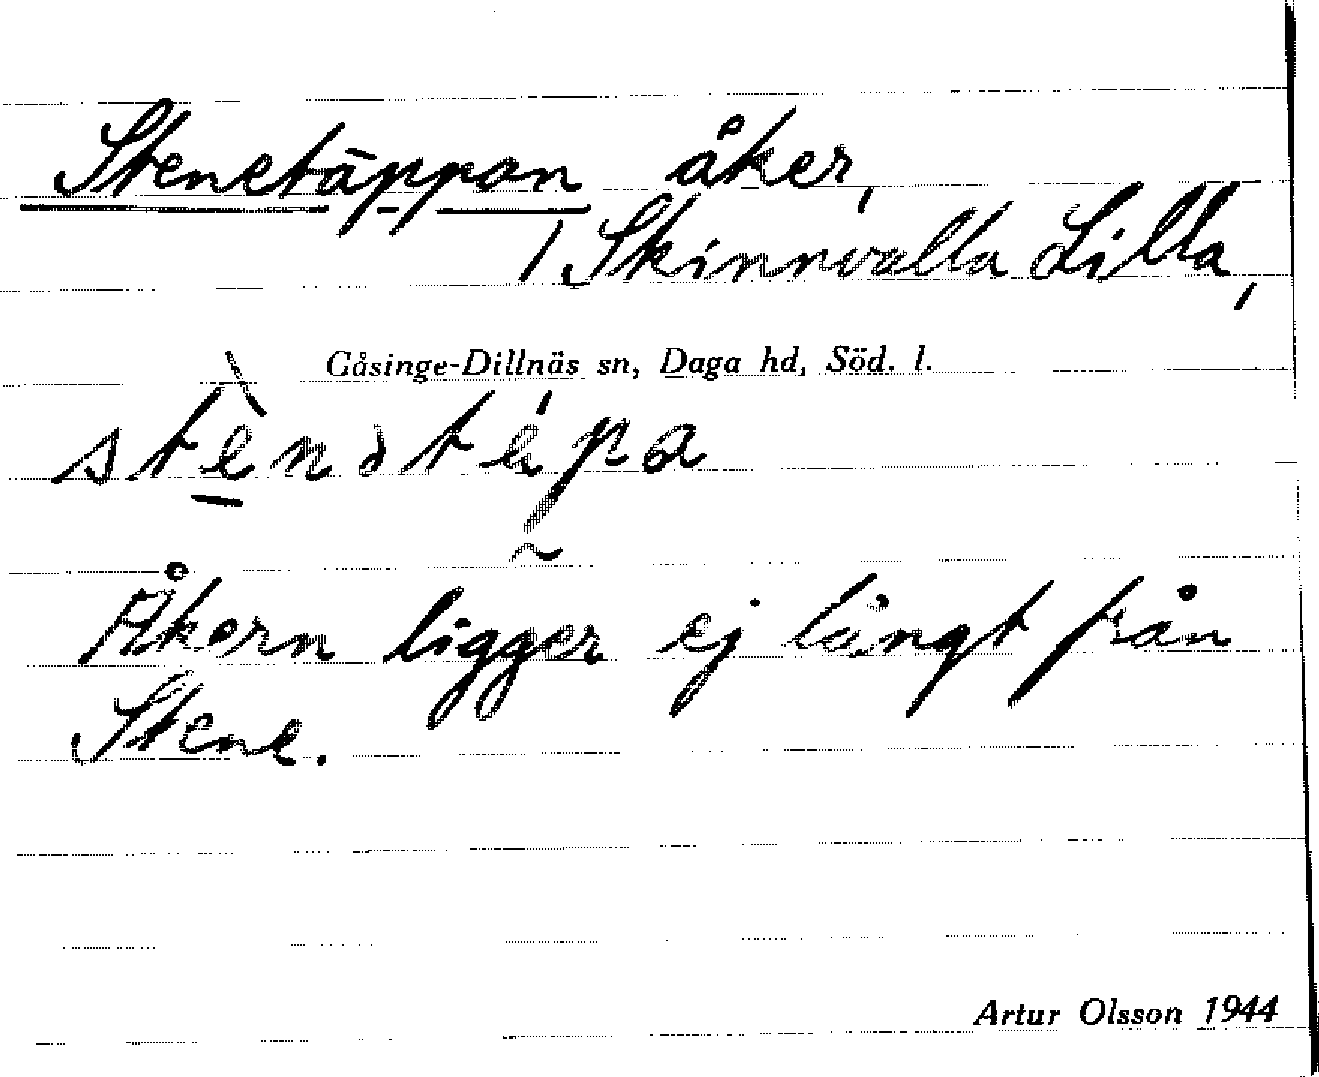 Stenetäppan åker,
/ Skinnvalla Lilla,
Gåsinge-Dillnäs sn, Daga hd, Söd. l.
Åkern ligger ej långt från
Stene.
Artur Olsson 1944